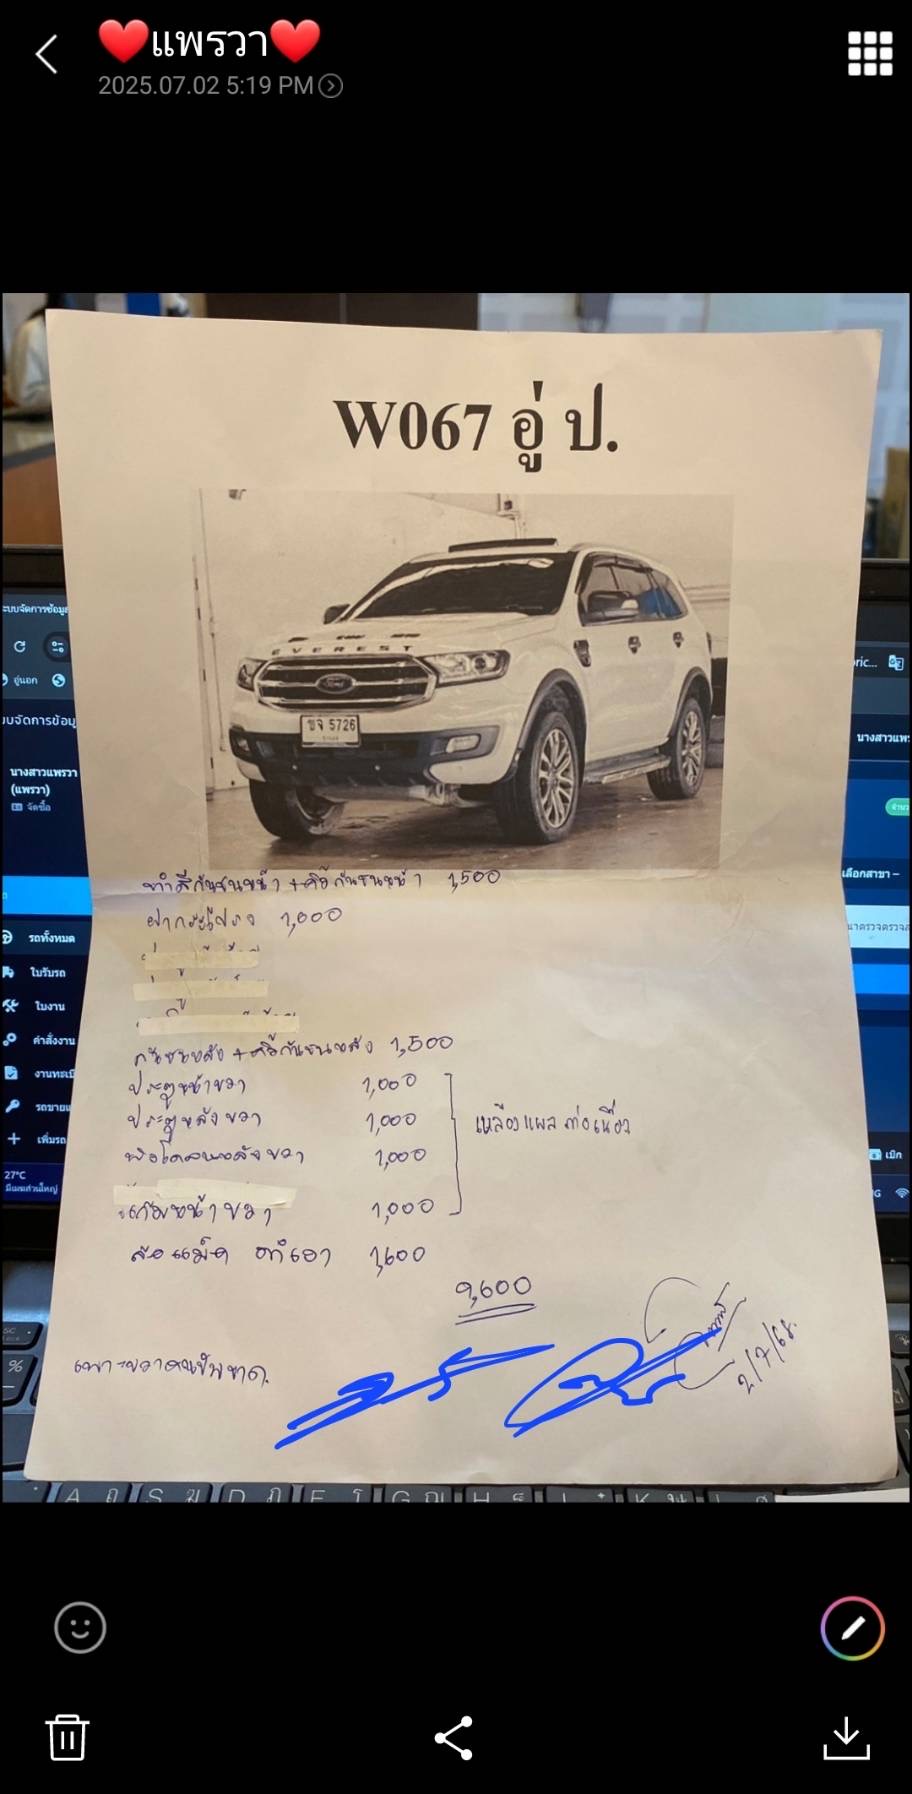 ❤️แพรวา❤️
2025.07.02 5:19 PM
W067 อู่ ป.
EVEREST
Ford
ขจ 5726
ทำสีกันชนหน้า+คิ้วกันชนหน้า 1,500
ฝากระโปรง 1,000
กันชนหลัง+คิ้วกันชนหลัง 1,500
ประตูหน้าขวา 1,000
ประตูหลังขวา 1,000
เหลือแผลต่อเนื่อง
บังโคลนหลังขวา 1,000
แก้มหน้าขวา 1,000
ล้อแม็ค 1,600
9,600
2/7/68.
ระบบจัดการข้อมูล
อู่นอก
นางสาวแพรวา
(แพรวา)
จัดซื้อ
รถทั้งหมด
ใบรับรถ
ใบงาน
คำสั่งงาน
งานทะเบี
รถขายแ
เพิ่มรถ
27°C
มีเมฆส่วนใหญ่
นางสาวแพร
เลือกสาขา –
เบิก
A S D F G H K L